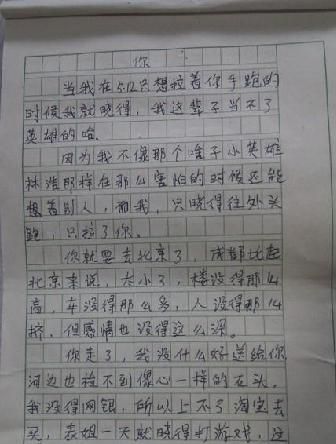 你
当我在512只想拉着你手跑的
时候我就晓得，我这辈子当不了
英雄的哈
因为我不像那个啥子小英雄
林浩那样在那么害怕的时候还能
想着别人，而我，只晓得往外头
跑，只拉了你。
你就要去北京了，成都比起
北京来说，太小了，楼没得那么
高，车没得那么多，人没得那么
挤，但感情也没得这么深。
你走了，我没什么好送给你
河边也捡不到像心一样的石头，
我没得网银，所以上不了淘宝去
买，表姐一天就晓得打游戏，这